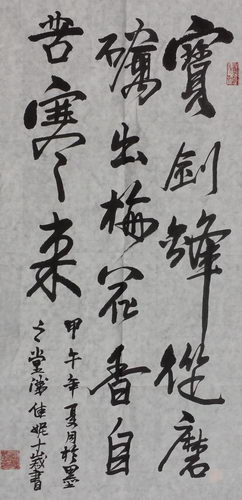 寶劍鋒從磨
礪出梅花香自
苦寒來
甲午年夏月於墨
之堂潘佳妮十歲書